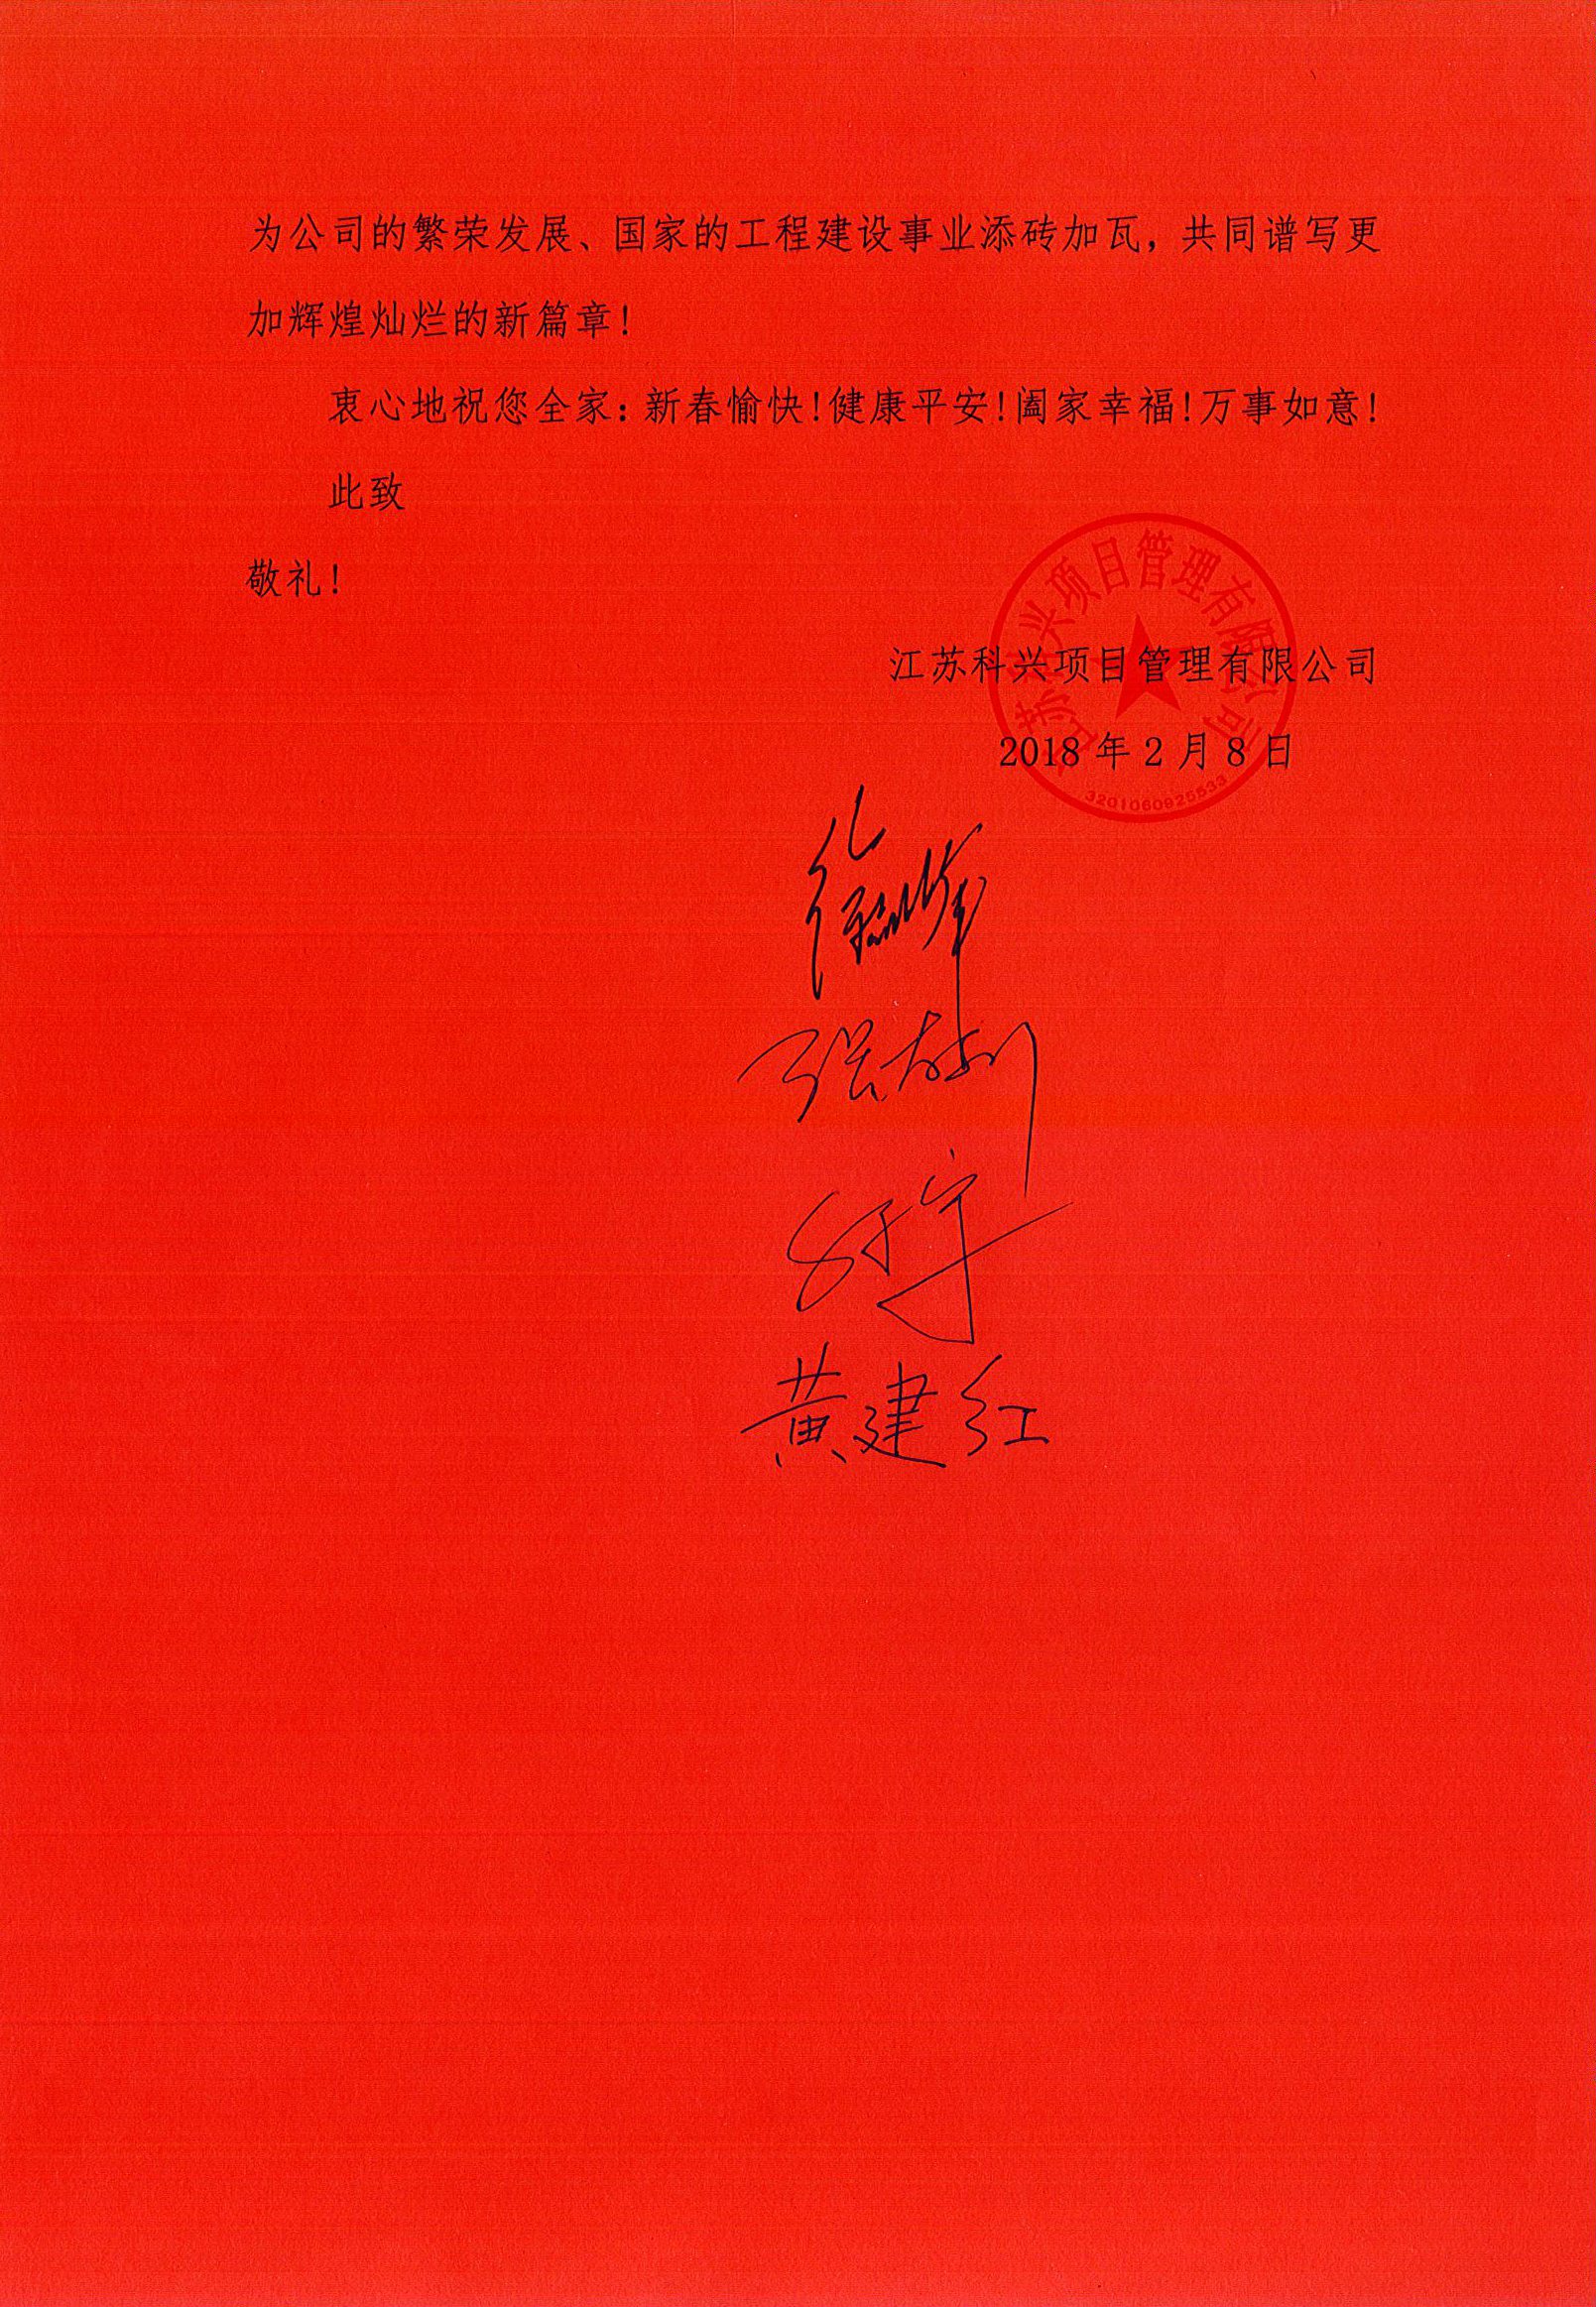 为公司的繁荣发展、国家的工程建设事业添砖加瓦，共同谱写更
加辉煌灿烂的新篇章！
衷心地祝您全家：新春愉快！健康平安！阖家幸福！万事如意！
此致
敬礼！
江苏科兴项目管理有限公司
江苏科兴项目管理有限公司
2018 年 2 月 8 日
3201060925533
黄建红